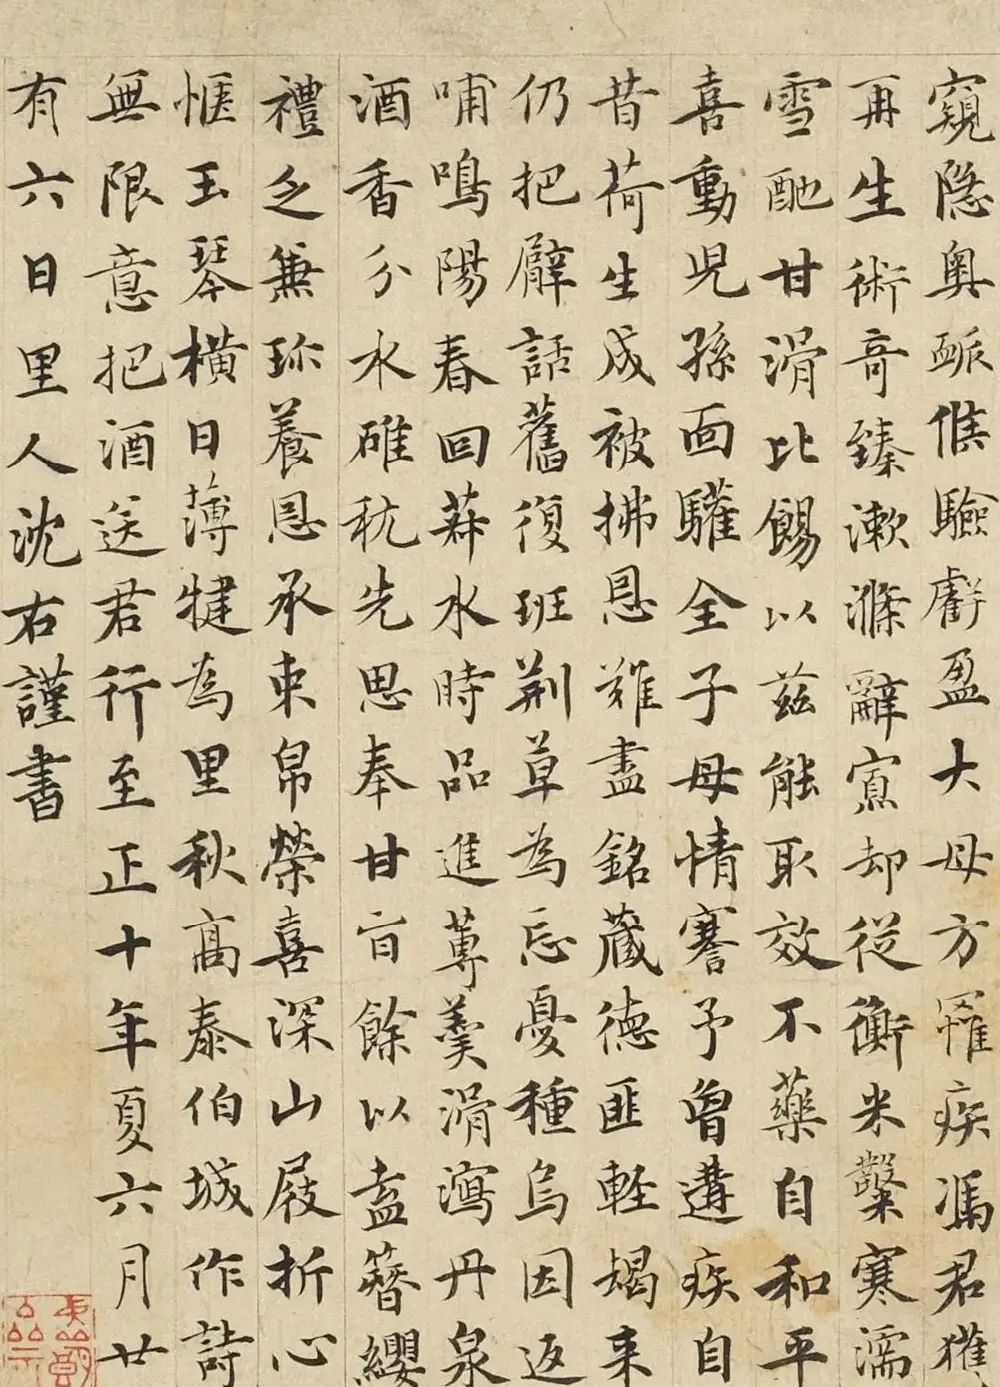 窺隐奧脈候驗虧盈大母方罹疾馮君獲
再生術奇臻漱滌辭賔却從衡米糳寒濡
雪酏甘滑比餳以茲能取效不藥自和平
喜動児孫面驩全子母情謇予曾遘疾自
昔荷生成被拂恩難盡銘蔵德匪軽朅来
仍把臂話舊復班荆草為忘憂種烏因返
哺鳴陽春回莽水時品進蓴羹滑瀉丹泉
酒香分水碓秔先思奉甘旨餘以盍簪纓
禮之兼珎養恩承束帛榮喜深山屐折心
愜玉琴橫日薄犍為里秋髙泰伯城作詩
無限意把酒送君行至正十年夏六月廿
有六日里人沈右謹書